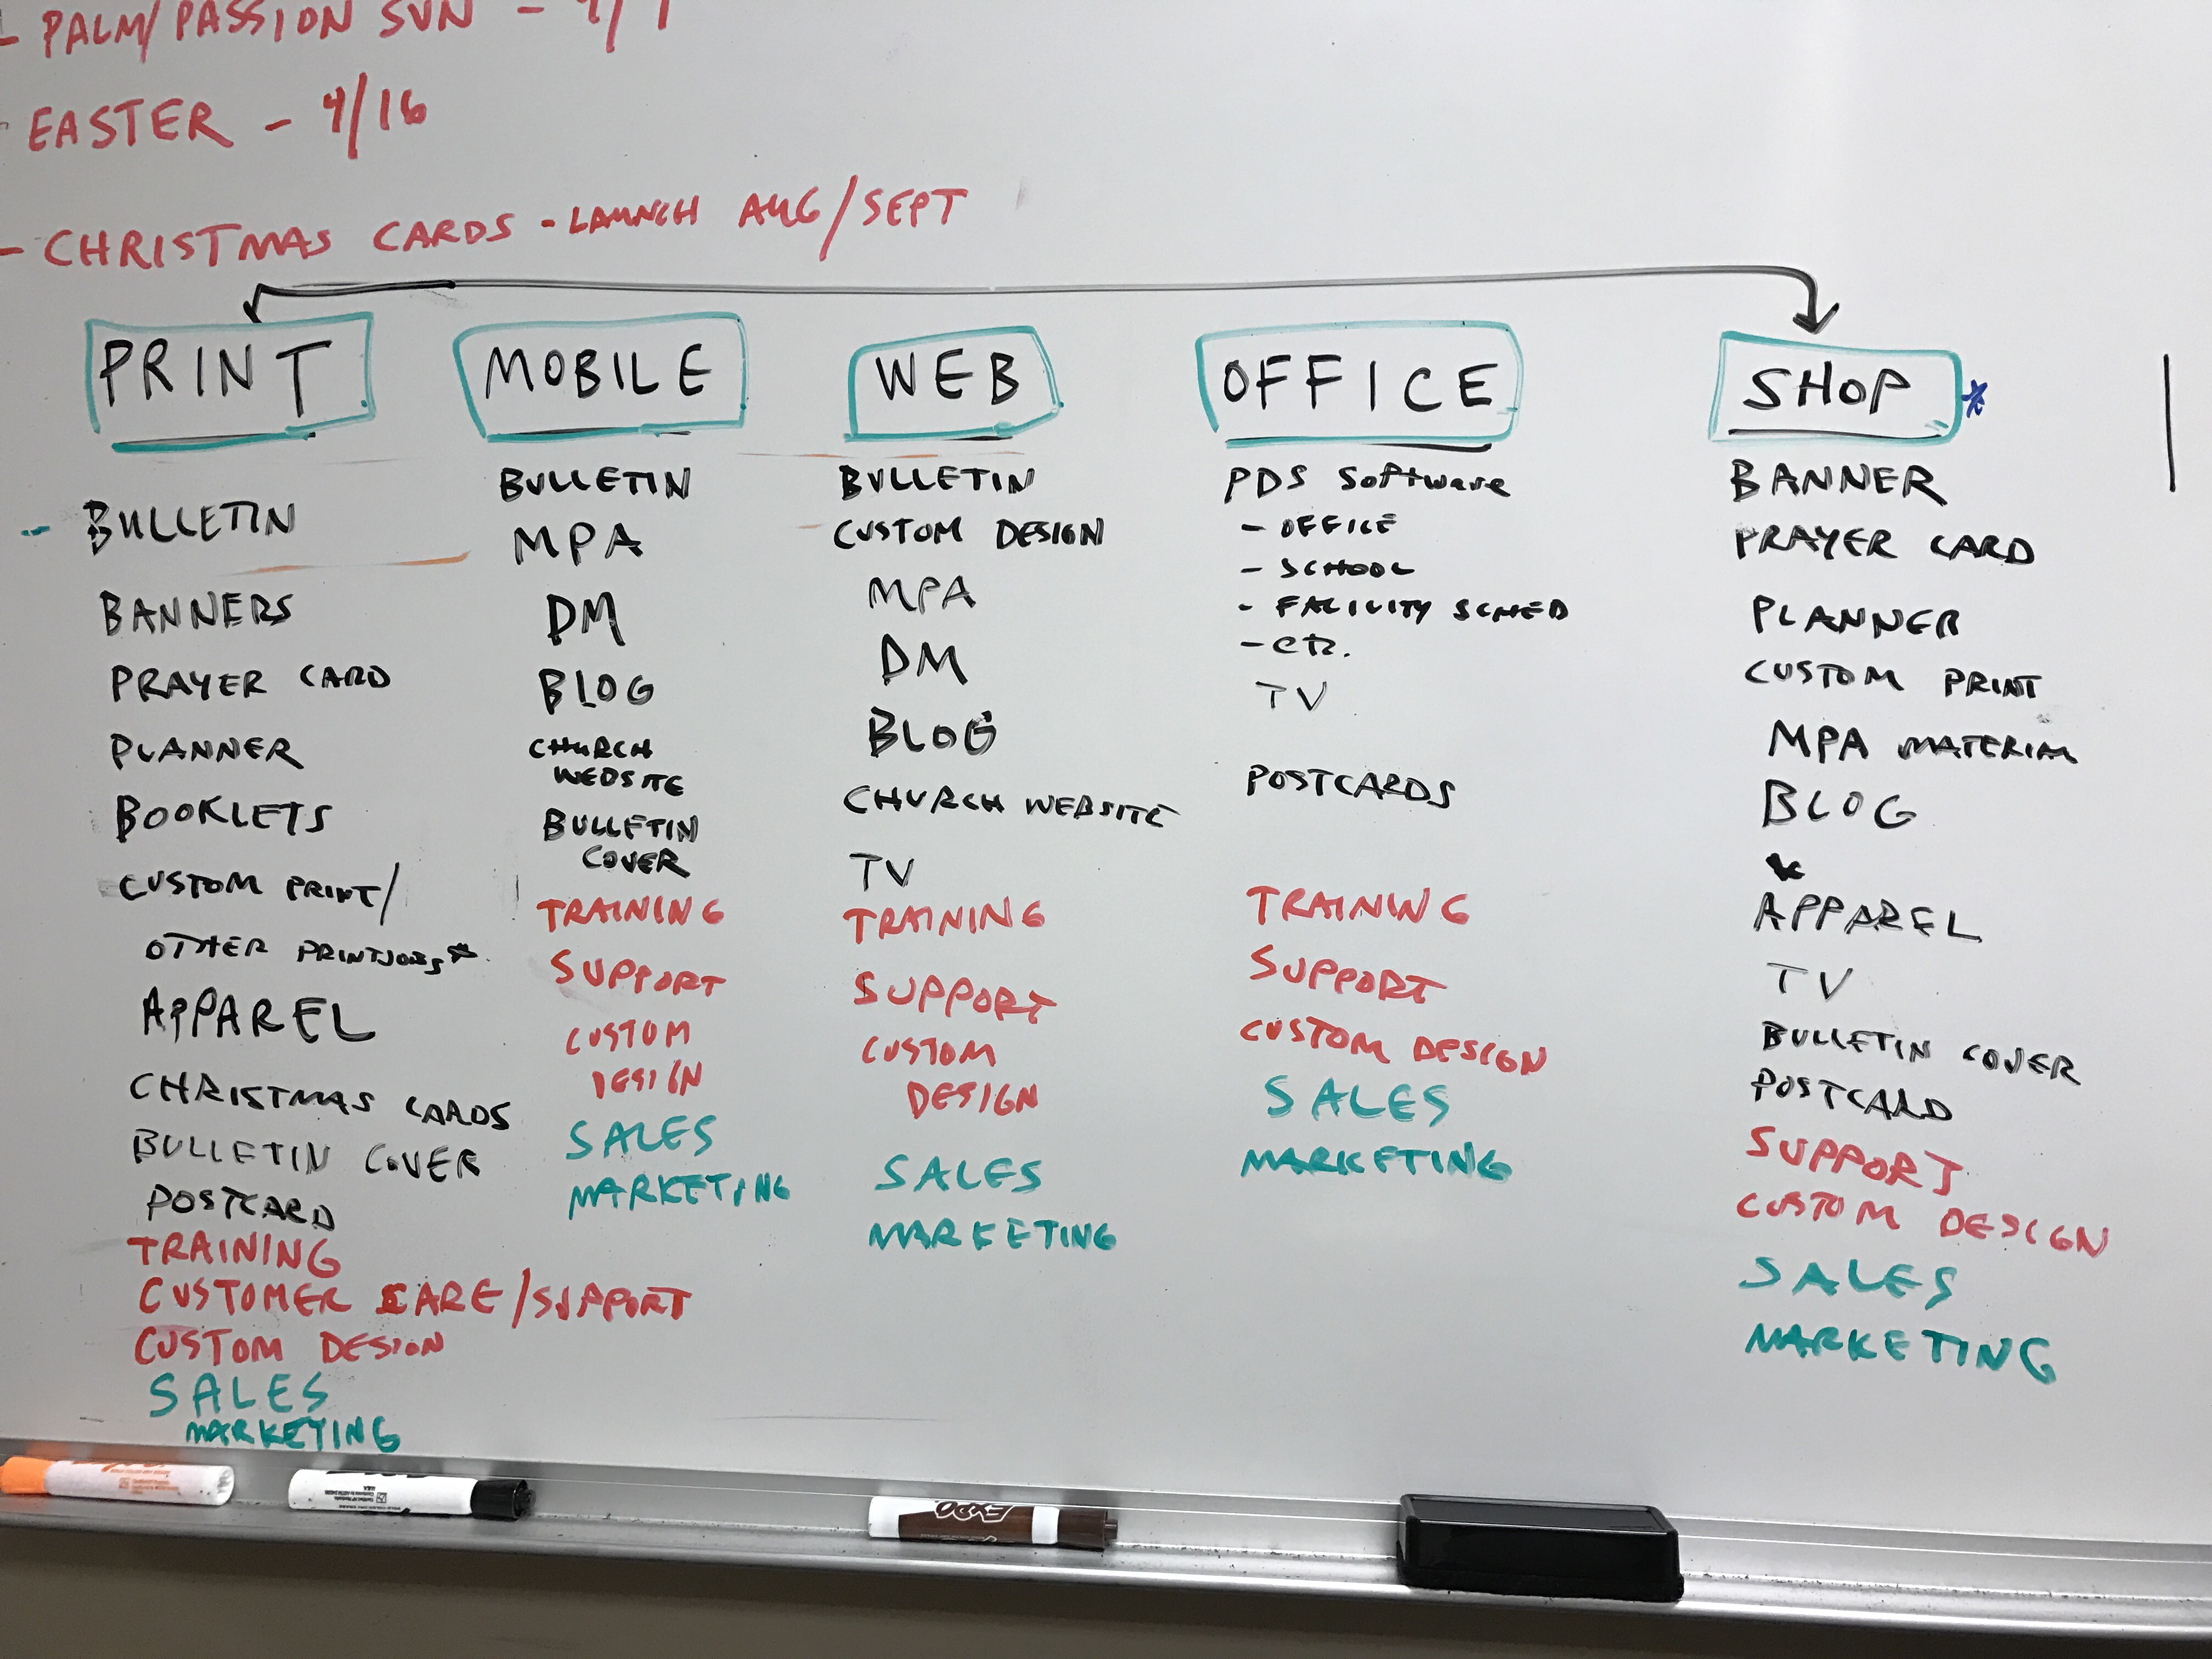 - PALM/PASSION SUN -
EASTER - 4/16
- CHRISTMAS CARDS - LAUNCH AUG/SEPT
PRINT
- BULLETIN
BANNERS
PRAYER CARD
PLANNER
BOOKLETS
CUSTOM PRINT/
OTHER PRINTJOBS*
APPAREL
CHRISTMAS CARDS
BULLETIN COVER
POSTCARD
TRAINING
CUSTOMER CARE/SUPPORT
CUSTOM DESIGN
SALES
MARKETING
MOBILE
BULLETIN
MPA
DM
BLOG
CHURCH
WEDSITE
BULLETIN
COVER
TRAINING
SUPPORT
CUSTOM
DESIGN
SALES
MARKETING
WEB
BULLETIN
CUSTOM DESIGN
MPA
DM
BLOG
CHURCH WEBSITE
TV
TRAINING
SUPPORT
CUSTOM
DESIGN
SALES
MARKETING
OFFICE
PDS Software
- OFFICE
- SCHOOL
- FACILITY SCHED
- ETC.
TV
POSTCARDS
TRAINING
SUPPORT
CUSTOM DESIGN
SALES
MARKETING
SHOP *
BANNER
PRAYER CARD
PLANNER
CUSTOM PRINT
MPA MATERIAL
BLOG
APPAREL
TV
BULLETIN COVER
POSTCARD
SUPPORT
CUSTOM DESIGN
SALES
MARKETING
EXPO